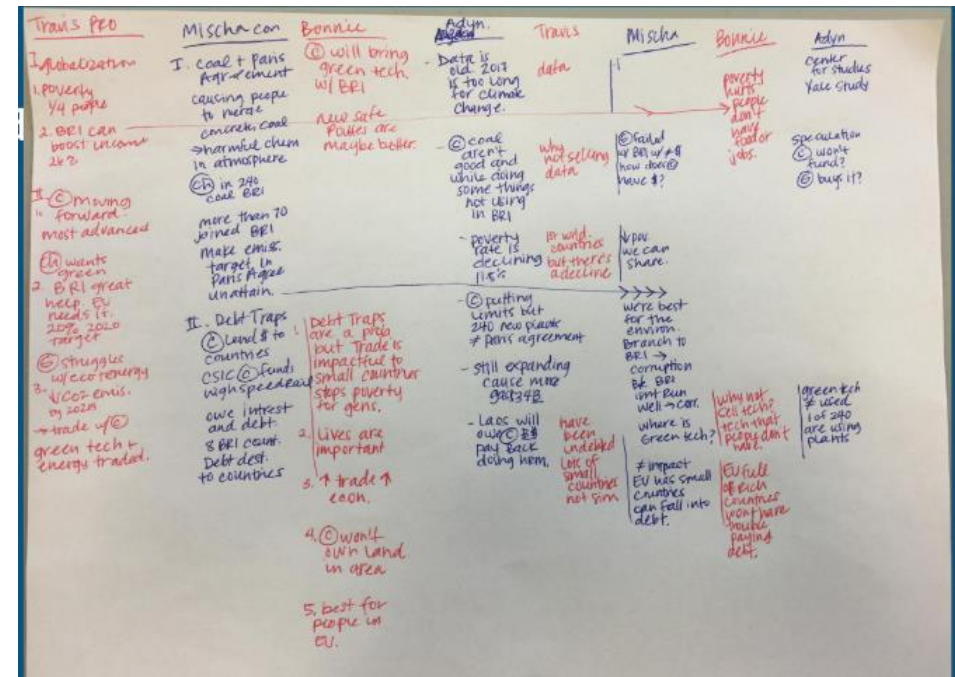 Travis PRO
I. globalization
1. poverty
1/4 people
2. BRI can
boost income
II. Ⓒ moving
1. forward.
most advanced
wants
green
2. BRI great
help. EU
needs it.
20% 2020
target
Ⓔ struggles
w/eco+energy
3. ↓CO2 emis.
by 2020
→ trade w/Ⓒ
green tech +
energy traded.
Mischa con
I. coal + Paris
Agreement
causing people
to
concrete, coal
→harmful chem
in atmosphere
Ch in 240
coal BRI
more than 70
joined BRI
make emiss.
target in
Paris Agree
unattain.
II. Debt Traps
Ⓒ Lend $ to
countries
CSIC Ⓒ funds
high speed rail
owe intrest
and debt.
8 BRI count.
Debt dest.
to countries
Bonnie
Ⓒ will bring
green tech.
w/ BRI
new safe
are
maybe better.
1. Debt Traps
are a prob
but Trade is
impactful to
small countries
stops poverty
for gens.
2. Lives are
important
3. ↑ trade ↑
econ.
4. Ⓒ won't
own land
in area
5. best for
people in
EU.
Adyn.
- Data is
old. 2017
is too long
for climate
change.
- Ⓒ coal
aren't
good and
while doing
some things
not using
in BRI
- poverty
rate is
declining
- Ⓒ putting
limits but
240 new plants
≠ Paris agreement
- still expanding
cause more
- Laos will
owe Ⓒ
pay back
doing harm.
Travis
data
why
not selling
data
countries
but there's
a decline
have
been
indebted
Lots of
small
countries
not sinn
Mischa
Ⓔ failed
w/ BRI w/ ≠ $
how does Ⓔ
have $?
↓pov
we can
share.
were best
for the
environ.
Branch to
BRI →
corruption
b/c BRI
isnt run
well → corr.
where is
Green tech?
≠ impact
EU has small
countries
can fall into
debt.
Bonnie
poverty
hurts
people
don't
have
food or
jobs.
why not
sell tech?
tech that
people don't
have.
EU full
of rich
countries
wont have
trouble
paying
debt.
Adyn
center
for studies
Yale study
speculation
Ⓒ won't
fund?
Ⓔ buys it?
green tech
≠ used
1 of 240
are using
plants